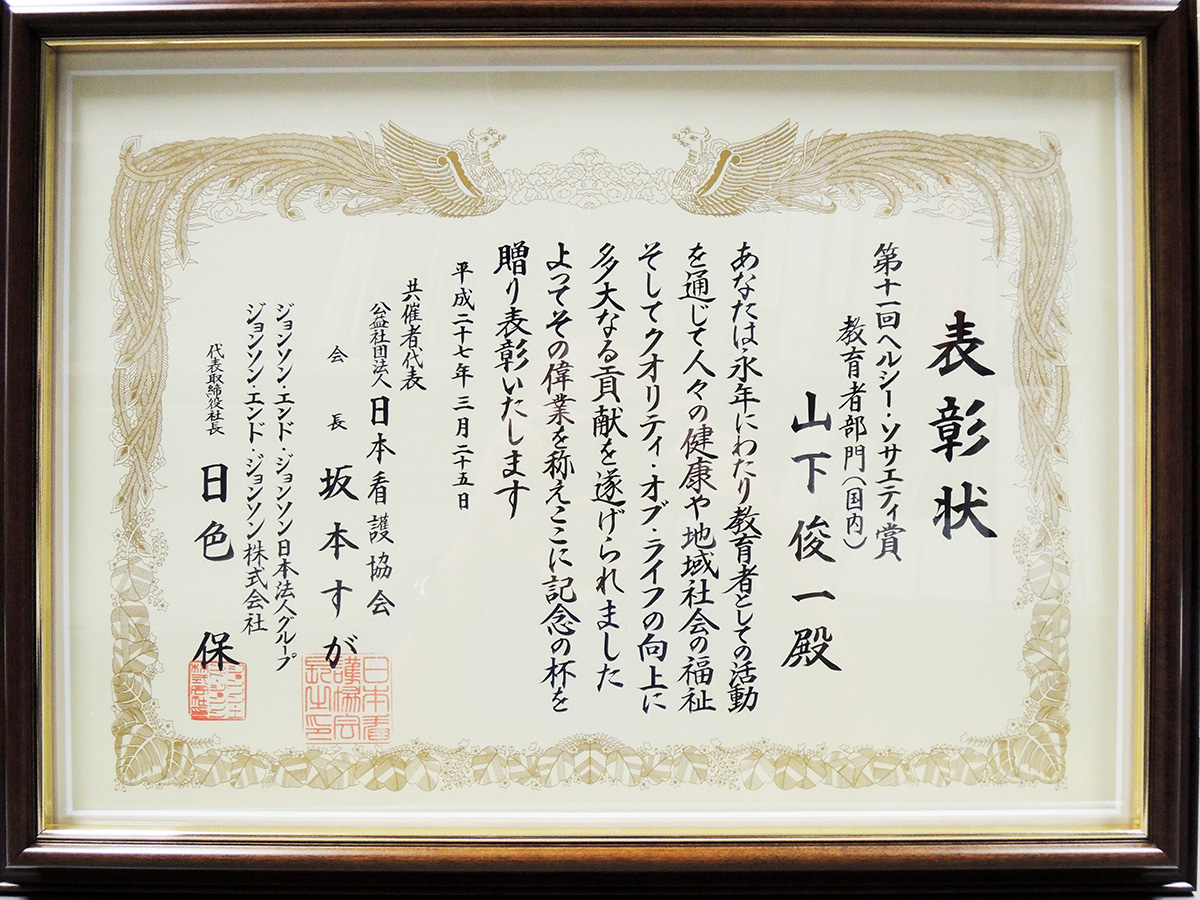 表彰状
第十一回ヘルシー・ソサエティ賞
教育者部門(国内)
山下俊一殿
あなたは永年にわたり教育者としての活動
を通じて人々の健康や地域社会の福祉
そしてクオリティ・オブ・ライフの向上に
多大なる貢献を遂げられました
よってその偉業を称えここに記念の杯を
贈り表彰いたします
平成二十七年三月二十五日
共催者代表
公益社団法人 日本看護協会
会長 坂本すが
ジョンソン・エンド・ジョンソン日本法人グループ
ジョンソン・エンド・ジョンソン株式会社
代表取締役社長 日色 保
日本看
護協会
長之印